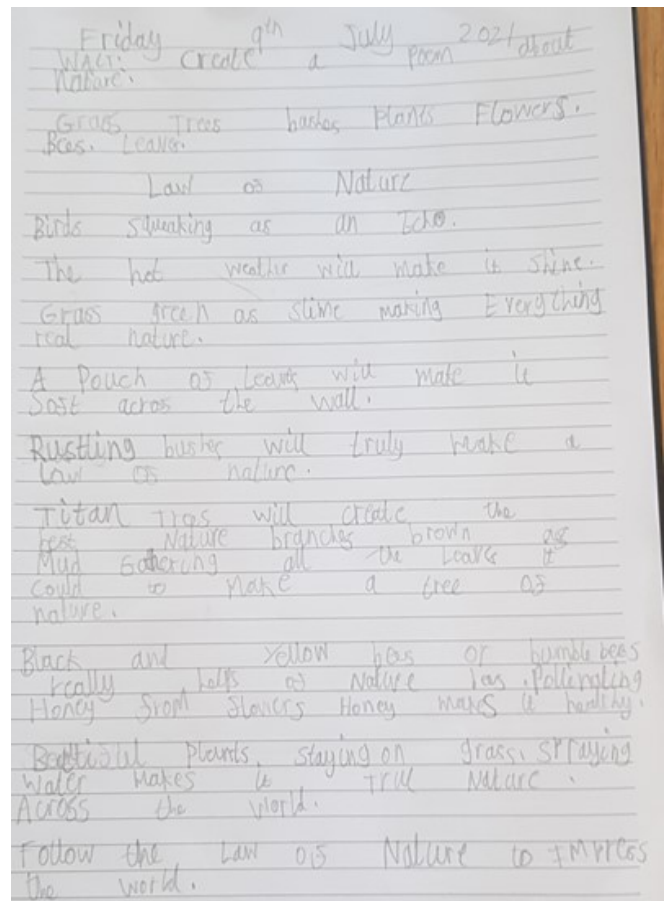 Friday 9th July 2021
WALT: Create a Poem about
Nature.
Grass Trees bushes Plants Flowers.
Bees. Leaves.
Law of Nature
Birds squeaking as an Echo.
The hot weather will make it shine.
Grass green as slime making Everything
real nature.
A Pouch of Leaves will make it
Soft across the wall.
Rustling bushes will truly make a
Law of nature.
Titan Trees will create the
best Nature branches brown as
Mud Gathering all the Leaves it
could to make a tree of
nature.
Black and Yellow bees or bumble bees
really helps of Nature has. Pollinating
Honey from flowers Honey makes it healthy.
Beautiful Plants, staying on grass. spraying
Water makes it True Nature.
Across the World.
Follow the Law of Nature to Impress
the world.